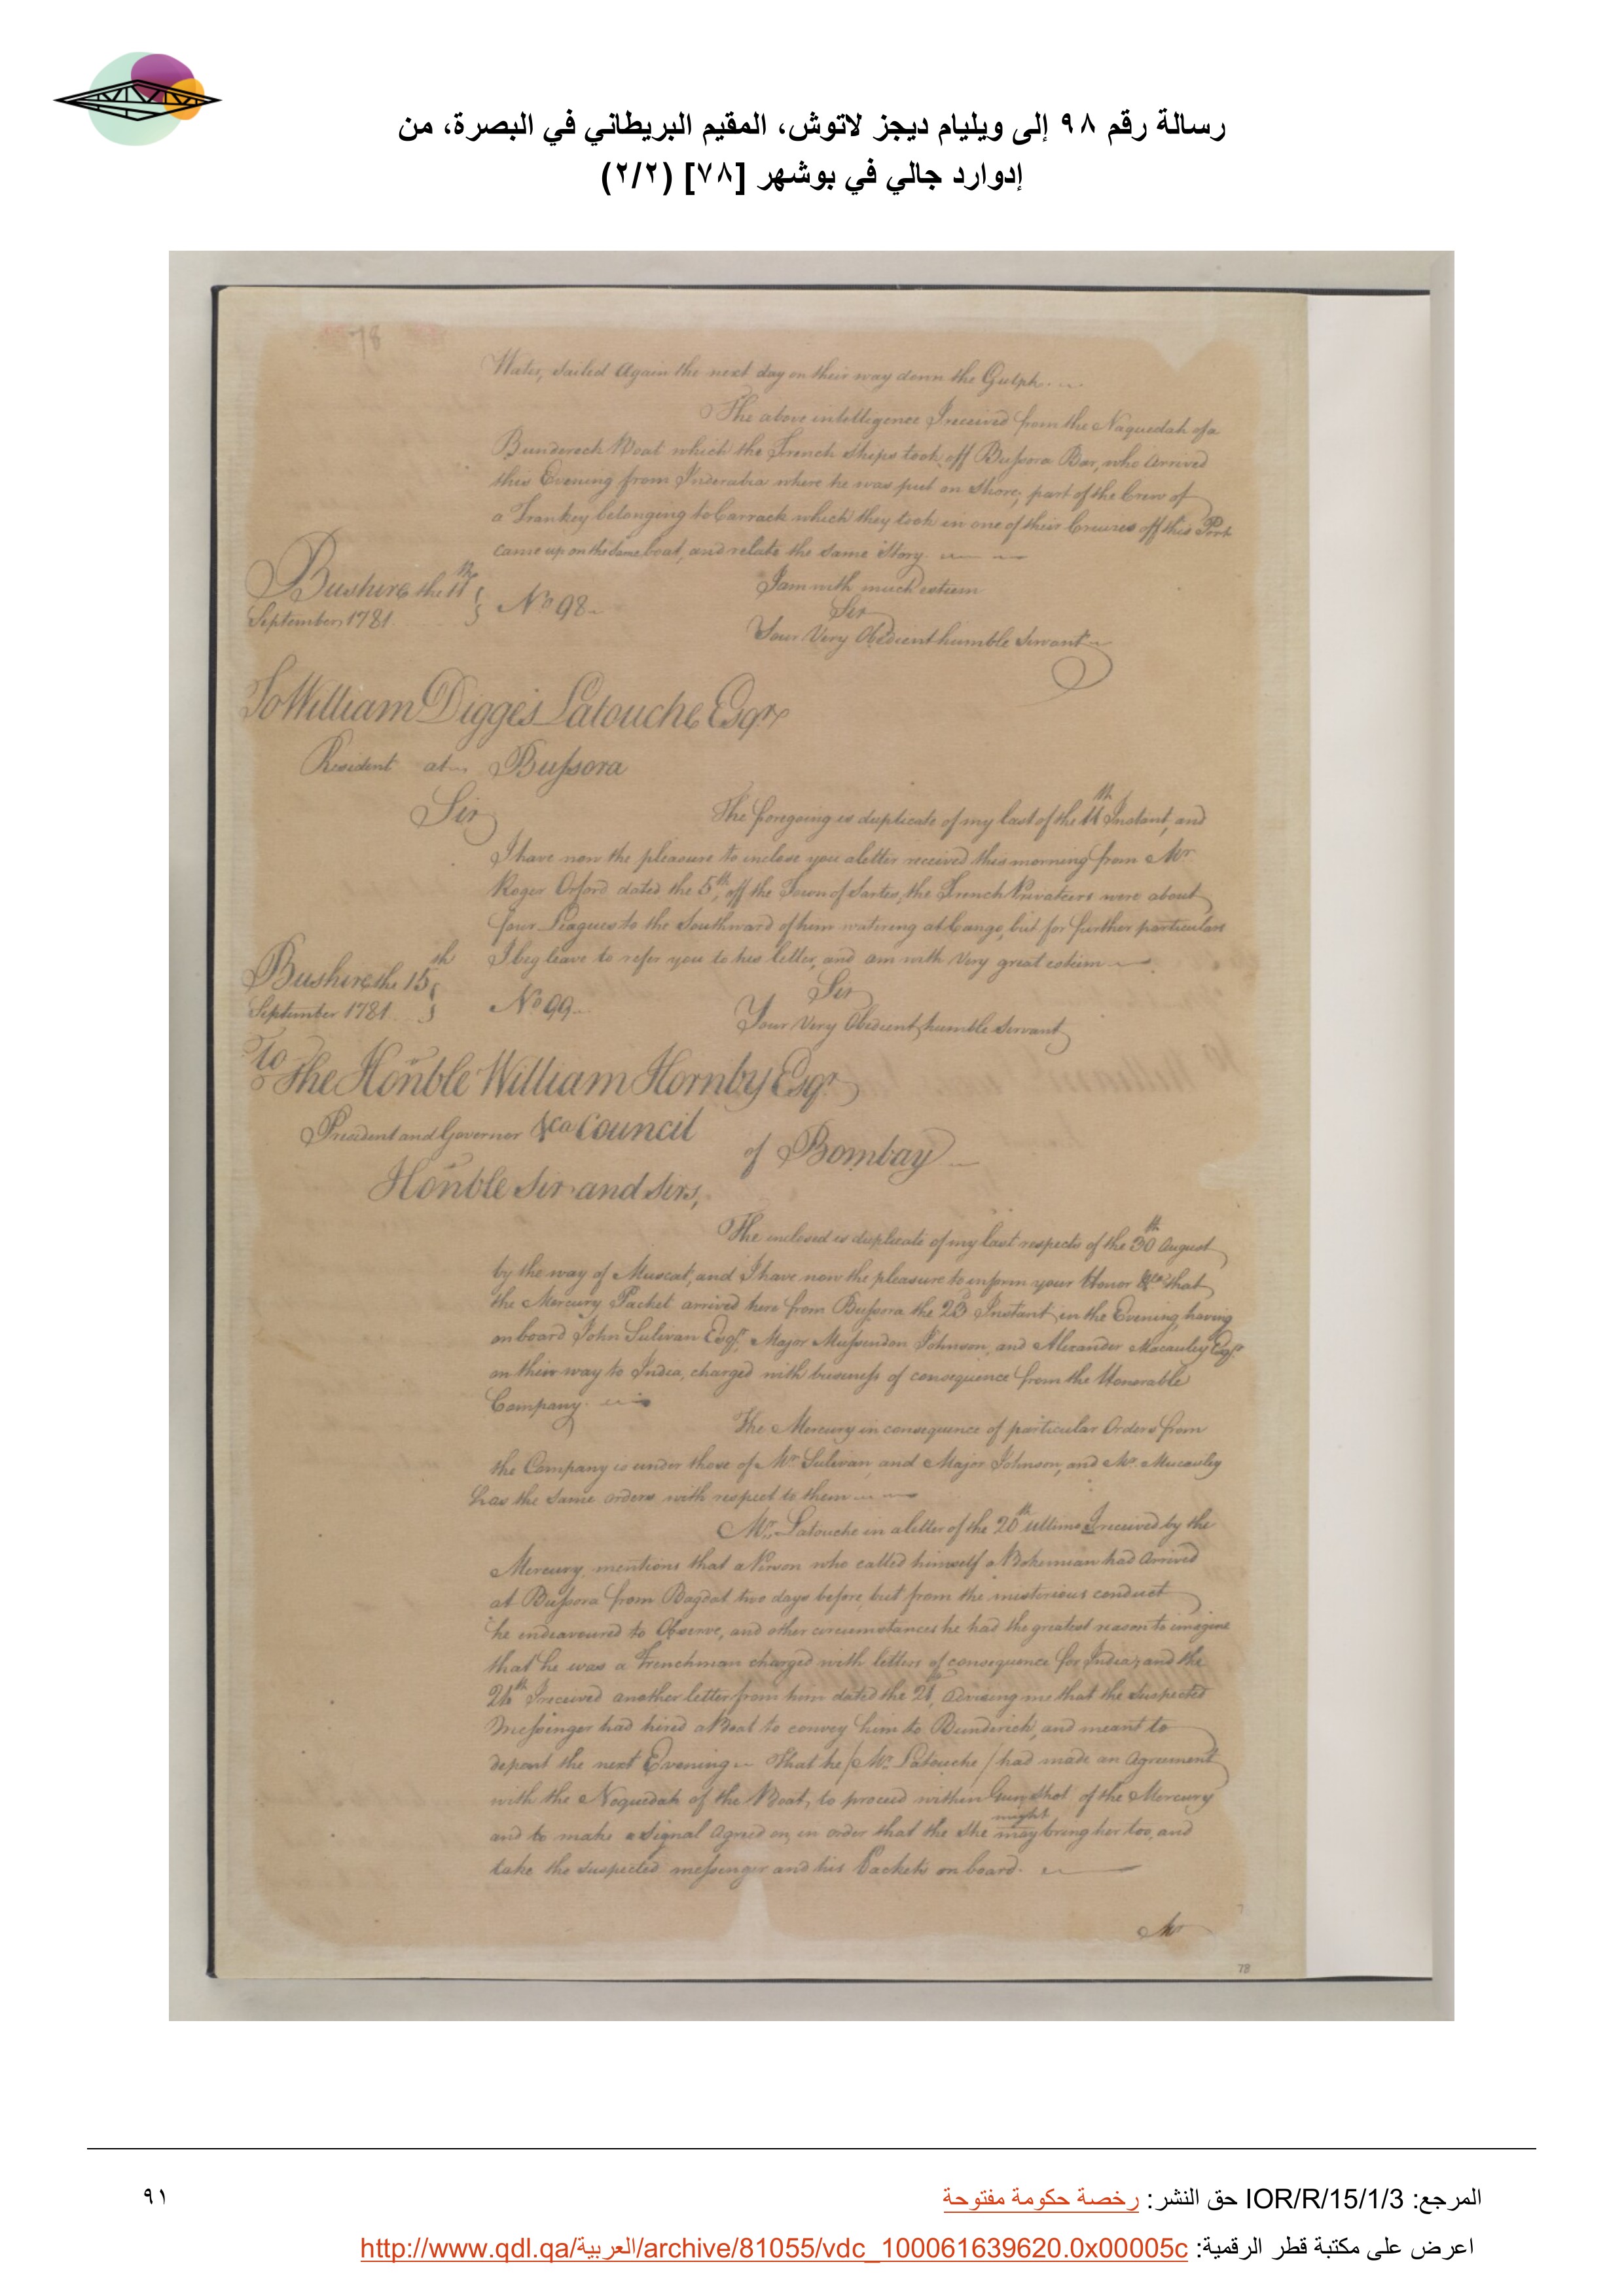 رسالة رقم ٩٨ إلى ويليام ديجز لاتوش، المقيم البريطاني في البصرة، من
إدوارد جالي في بوشهر [٧٨] (٢/٢)
78
Water, sailed Again the next day on their way down the Gulph.
The above intelligence I received from the Naquedah of a
Bundereck Boat which the French Ships took off Bussora Bar, who Arrived
this Evening from Inderabia where he was put on Shore; part of the Crew of
a Trankey belonging to Carrack which they took in one of their Cruizes off this Port
came up on the same boat, and relate the same Story.
I am with much esteem
Bushire the 11th
Sir
September 1781. No 98.
Your Very Obedient humble Servant
To William Digges Latouche Esqr
Resident at Bussora
Sir
The foregoing is duplicate of my last of the 11th Instant, and
I have now the pleasure to inclose you a letter received this morning from Mr
Roger Orford dated the 5th, off the Town of Sartes, the French Privateers were about
four Leagues to the Southward of him watering at Congo, but for further particulars
I beg leave to refer you to his letter, and am with Very great esteem
Bushire the 15th
Sir
September 1781. No 99.
Your Very Obedient humble Servant
To
The Honble William Hornby Esqr
President and Governor &ca Council
of Bombay
Honble Sir and Sirs,
The enclosed is duplicate of my last respects of the 30th August
by the way of Muscat, and I have now the pleasure to inform your Honor &ca that
the Mercury Packet arrived here from Bussora the 23 Instant in the Evening, having
on board John Sulivan Esqr, Major Mussendon Johnson, and Alexander Macauley Esqr
on their way to India, charged with business of consequence from the Honorable
Company.
The Mercury in consequence of particular Orders from
the Company is under those of Mr Sulivan, and Major Johnson, and Mr. Macauley
has the same orders with respect to them
Mr. Latouche in a letter of the 20th ultimo I received by the
Mercury, mentions that a Person who called himself a Bohemian had Arrived
at Bussora from Bagdat two days before, but from the misterious conduct
he endeavoured to Observe, and other circumstances he had the greatest reason to imagine
that he was a Frenchman charged with letters of consequence for India; and the
24th I received another letter from him dated the 21, advising me that the suspected
Messenger had hired a Boat to convey him to Bunderick, and meant to
depart the next Evening. That he /Mr. Latouche/ had made an Agreement
with the Noquedah of the Boat, to proceed within Gun Shot of the Mercury
might
and to make a Signal Agreed on, in order that the She may bring her too, and
take the suspected messenger and his Packets on board.
Mr
78
المرجع: IOR/R/15/1/3 حق النشر: رخصة حكومة مفتوحة
٩١
اعرض على مكتبة قطر الرقمية: http://www.qdl.qa/العربية/archive/81055/vdc_100061639620.0x00005c